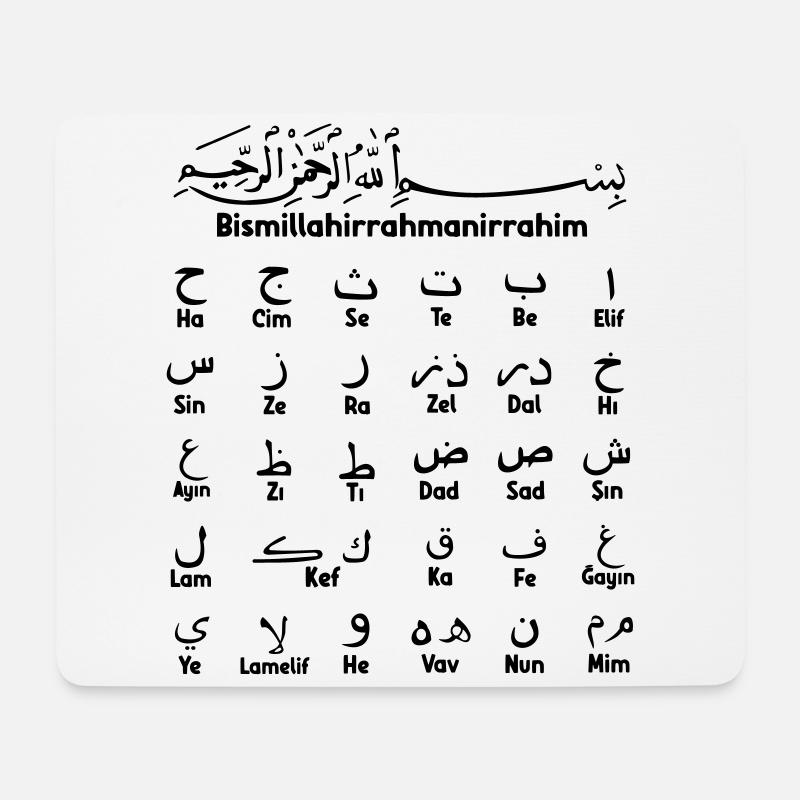 بِسْمِ ٱللَّهِ ٱلرَّحْمَٰنِ ٱلرَّحِيمِ
Bismillahirrahmanirrahim
ا ب ت ث ج ح
Ha Cim Se Te Be Elif
خ در ذز ر ز س
Sin Ze Ra Zel Dal Hı
ش ص ض ط ظ ع
Ayın Zı Tı Dad Sad Şın
غ ف ق ك ک ل
Lam Kef Ka Fe Ğayın
م م ن ه ه و لا ي
Ye Lamelif He Vav Nun Mim